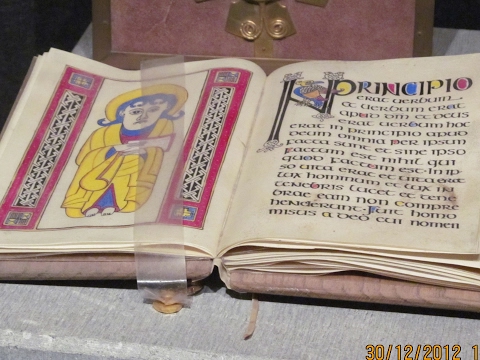 IN PRINCIPIO
erat uerbum
et uerbum erat
apud dm et deus
erat uerbum hoc
erat in principio apud
deum omnia per ipsum
facta sunt et sine ipso
factum est nihil qui
quod factum est in ip
so uita erat et uita erat
lux hominum et lux in
tenebris lucet et tene
brae eam non compre
henderunt fuit homo
misus a deo cui nomen
30/12/2012 1